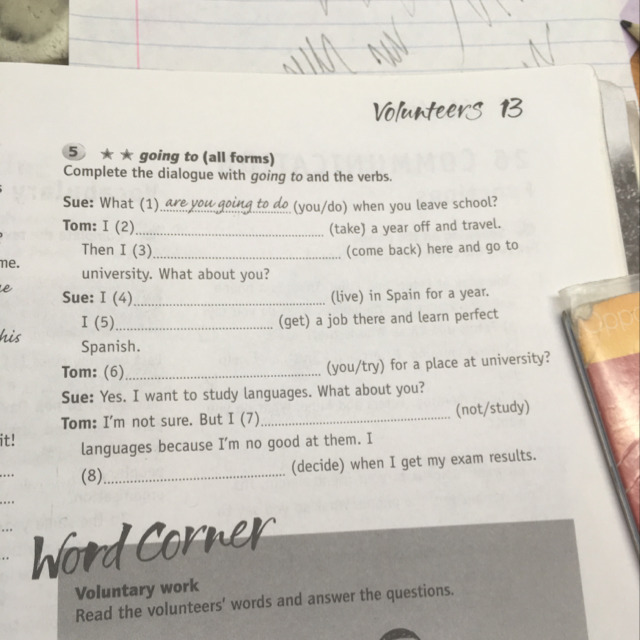 Volunteers 13
5 ★ ★ going to (all forms)
Complete the dialogue with going to and the verbs.
Sue: What (1) are you going to do (you/do) when you leave school?
Tom: I (2)........................ (take) a year off and travel.
Then I (3)........................ (come back) here and go to
university. What about you?
Sue: I (4)........................ (live) in Spain for a year.
I (5)........................ (get) a job there and learn perfect
Spanish.
Tom: (6)........................ (you/try) for a place at university?
Sue: Yes. I want to study languages. What about you?
Tom: I'm not sure. But I (7)........................ (not/study)
languages because I'm no good at them. I
(8)........................ (decide) when I get my exam results.
Word Corner
Voluntary work
Read the volunteers' words and answer the questions.
me.
his
it!